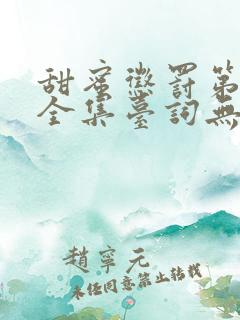 甜蜜懲罰第
全集臺詞無
趙寧元
未任同意禁止转载